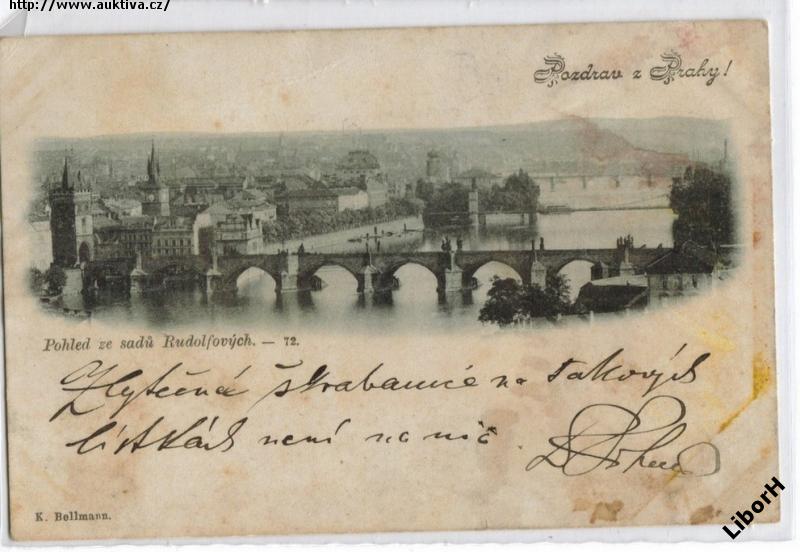 http://www.auktiva.cz/
Pozdrav z Prahy!
Pohled ze sadů Rudolfových. — 72.
Zbytečná škrabanice na takových
lístkách není na nic
K. Bellmann.
LiborH